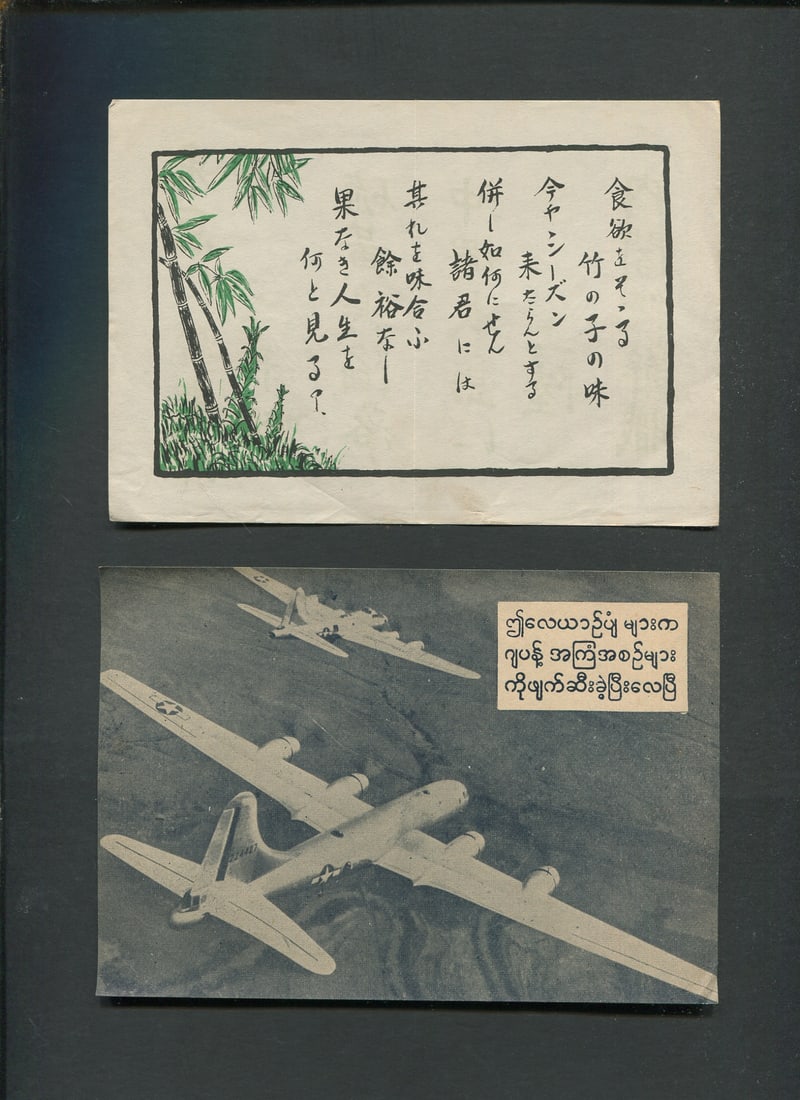 食欲をそゝる
竹の子の味
今ヤシーズン
来たらんとする
併し如何にせん
諸君には
其れを味合ふ
餘裕なし
果なき人生を
何と見る？
ဤလေယာဉ်ပျံ များက
ဂျပန့် အကြံအစဉ်များ
ကိုဖျက်ဆီးခဲ့ပြီးလေပြီ